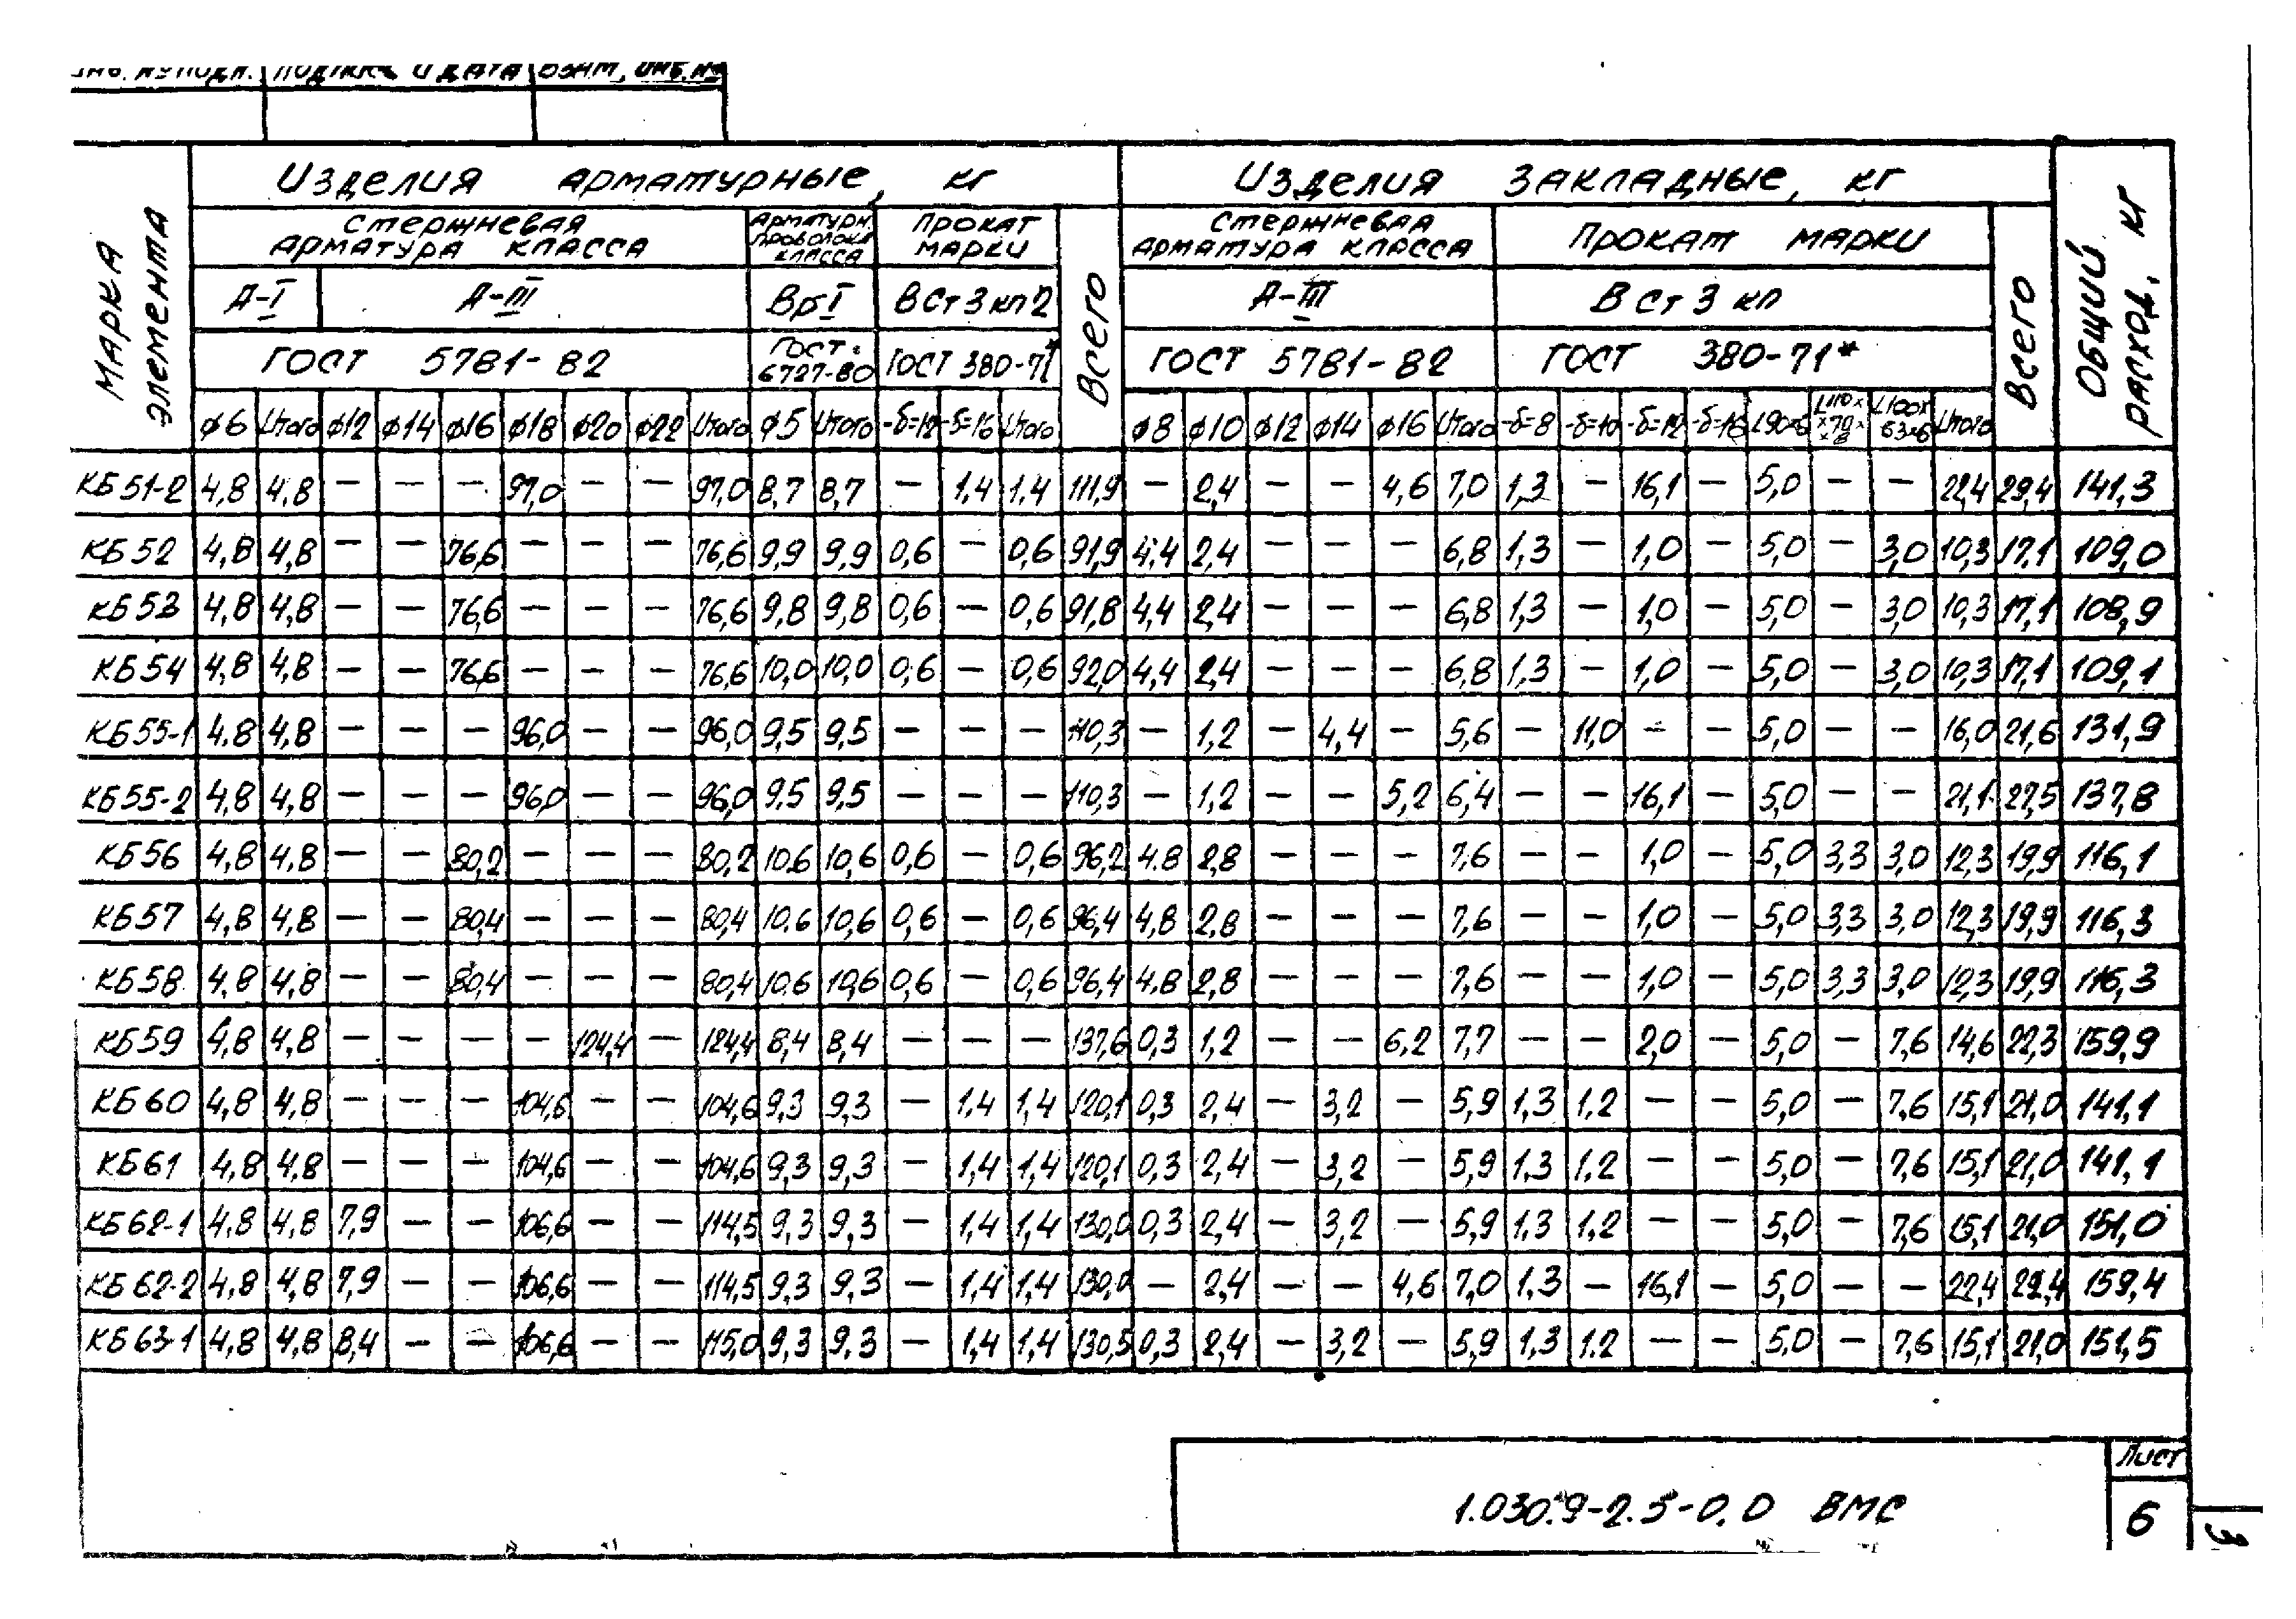 ПОДПИСЬ И ДАТА ВЗАМ. ИНВ. №
МАРКА ЭЛЕМЕНТА
Изделия арматурные, кг
Изделия закладные, кг
Общий расход, кг
Стержневая арматура класса
Арматурн. проволока класса
Прокат марки
Всего
Стержневая арматура класса
Прокат марки
Всего
А-I А-III Вр I ВСт3кп2 А-III ВСт3кп
ГОСТ 5781-82 ГОСТ 6727-80 ГОСТ 380-71* ГОСТ 5781-82 ГОСТ 380-71*
ф6 Итого ф12 ф14 ф16 ф18 ф20 ф22 Итого ф5 Итого -δ=12 -δ=16 Итого ф8 ф10 ф12 ф14 ф16 Итого -δ=8 -δ=10 -δ=12 -δ=16 L90×6 L110××70××8 L100×63×6 Итого
КБ51-2 4,8 4,8 — — — 97,0 — — 97,0 8,7 8,7 — 1,4 1,4 111,9 — 2,4 — — 4,6 7,0 1,3 — 16,1 — 5,0 — — 22,4 29,4 141,3
КБ52 4,8 4,8 — — 76,6 — — — 76,6 9,9 9,9 0,6 — 0,6 91,9 4,4 2,4 — — — 6,8 1,3 — 1,0 — 5,0 — 3,0 10,3 17,1 109,0
КБ53 4,8 4,8 — — 76,6 — — — 76,6 9,8 9,8 0,6 — 0,6 91,8 4,4 2,4 — — — 6,8 1,3 — 1,0 — 5,0 — 3,0 10,3 17,1 108,9
КБ54 4,8 4,8 — — 76,6 — — — 76,6 10,0 10,0 0,6 — 0,6 92,0 4,4 2,4 — — — 6,8 1,3 — 1,0 — 5,0 — 3,0 10,3 17,1 109,1
КБ55-1 4,8 4,8 — — — 96,0 — — 96,0 9,5 9,5 — — — 110,3 — 1,2 — 4,4 — 5,6 — 11,0 — — 5,0 — — 16,0 21,6 131,9
КБ55-2 4,8 4,8 — — — 96,0 — — 96,0 9,5 9,5 — — — 110,3 — 1,2 — — 5,2 6,4 — — 16,1 — 5,0 — — 21,1 27,5 137,8
КБ56 4,8 4,8 — — 80,2 — — — 80,2 10,6 10,6 0,6 — 0,6 96,2 4,8 2,8 — — — 7,6 — — 1,0 — 5,0 3,3 3,0 12,3 19,9 116,1
КБ57 4,8 4,8 — — 80,4 — — — 80,4 10,6 10,6 0,6 — 0,6 96,4 4,8 2,8 — — — 7,6 — — 1,0 — 5,0 3,3 3,0 12,3 19,9 116,3
КБ58 4,8 4,8 — — 80,4 — — — 80,4 10,6 10,6 0,6 — 0,6 96,4 4,8 2,8 — — — 7,6 — — 1,0 — 5,0 3,3 3,0 12,3 19,9 116,3
КБ59 4,8 4,8 — — — — 124,4 — 124,4 8,4 8,4 — — — 137,6 0,3 1,2 — — 6,2 7,7 — — 2,0 — 5,0 — 7,6 14,6 22,3 159,9
КБ60 4,8 4,8 — — — 104,6 — — 104,6 9,3 9,3 — 1,4 1,4 120,1 0,3 2,4 — 3,2 — 5,9 1,3 1,2 — — 5,0 — 7,6 15,1 21,0 141,1
КБ61 4,8 4,8 — — — 104,6 — — 104,6 9,3 9,3 — 1,4 1,4 120,1 0,3 2,4 — 3,2 — 5,9 1,3 1,2 — — 5,0 — 7,6 15,1 21,0 141,1
КБ62-1 4,8 4,8 7,9 — — 106,6 — — 114,5 9,3 9,3 — 1,4 1,4 130,0 0,3 2,4 — 3,2 — 5,9 1,3 1,2 — — 5,0 — 7,6 15,1 21,0 151,0
КБ62-2 4,8 4,8 7,9 — — 106,6 — — 114,5 9,3 9,3 — 1,4 1,4 130,0 — 2,4 — — 4,6 7,0 1,3 — 16,1 — 5,0 — — 22,4 29,4 159,4
КБ63-1 4,8 4,8 8,4 — — 106,6 — — 115,0 9,3 9,3 — 1,4 1,4 130,5 0,3 2,4 — 3,2 — 5,9 1,3 1,2 — — 5,0 — 7,6 15,1 21,0 151,5
1.030.9-2.5-0.0 ВМС
Лист
6